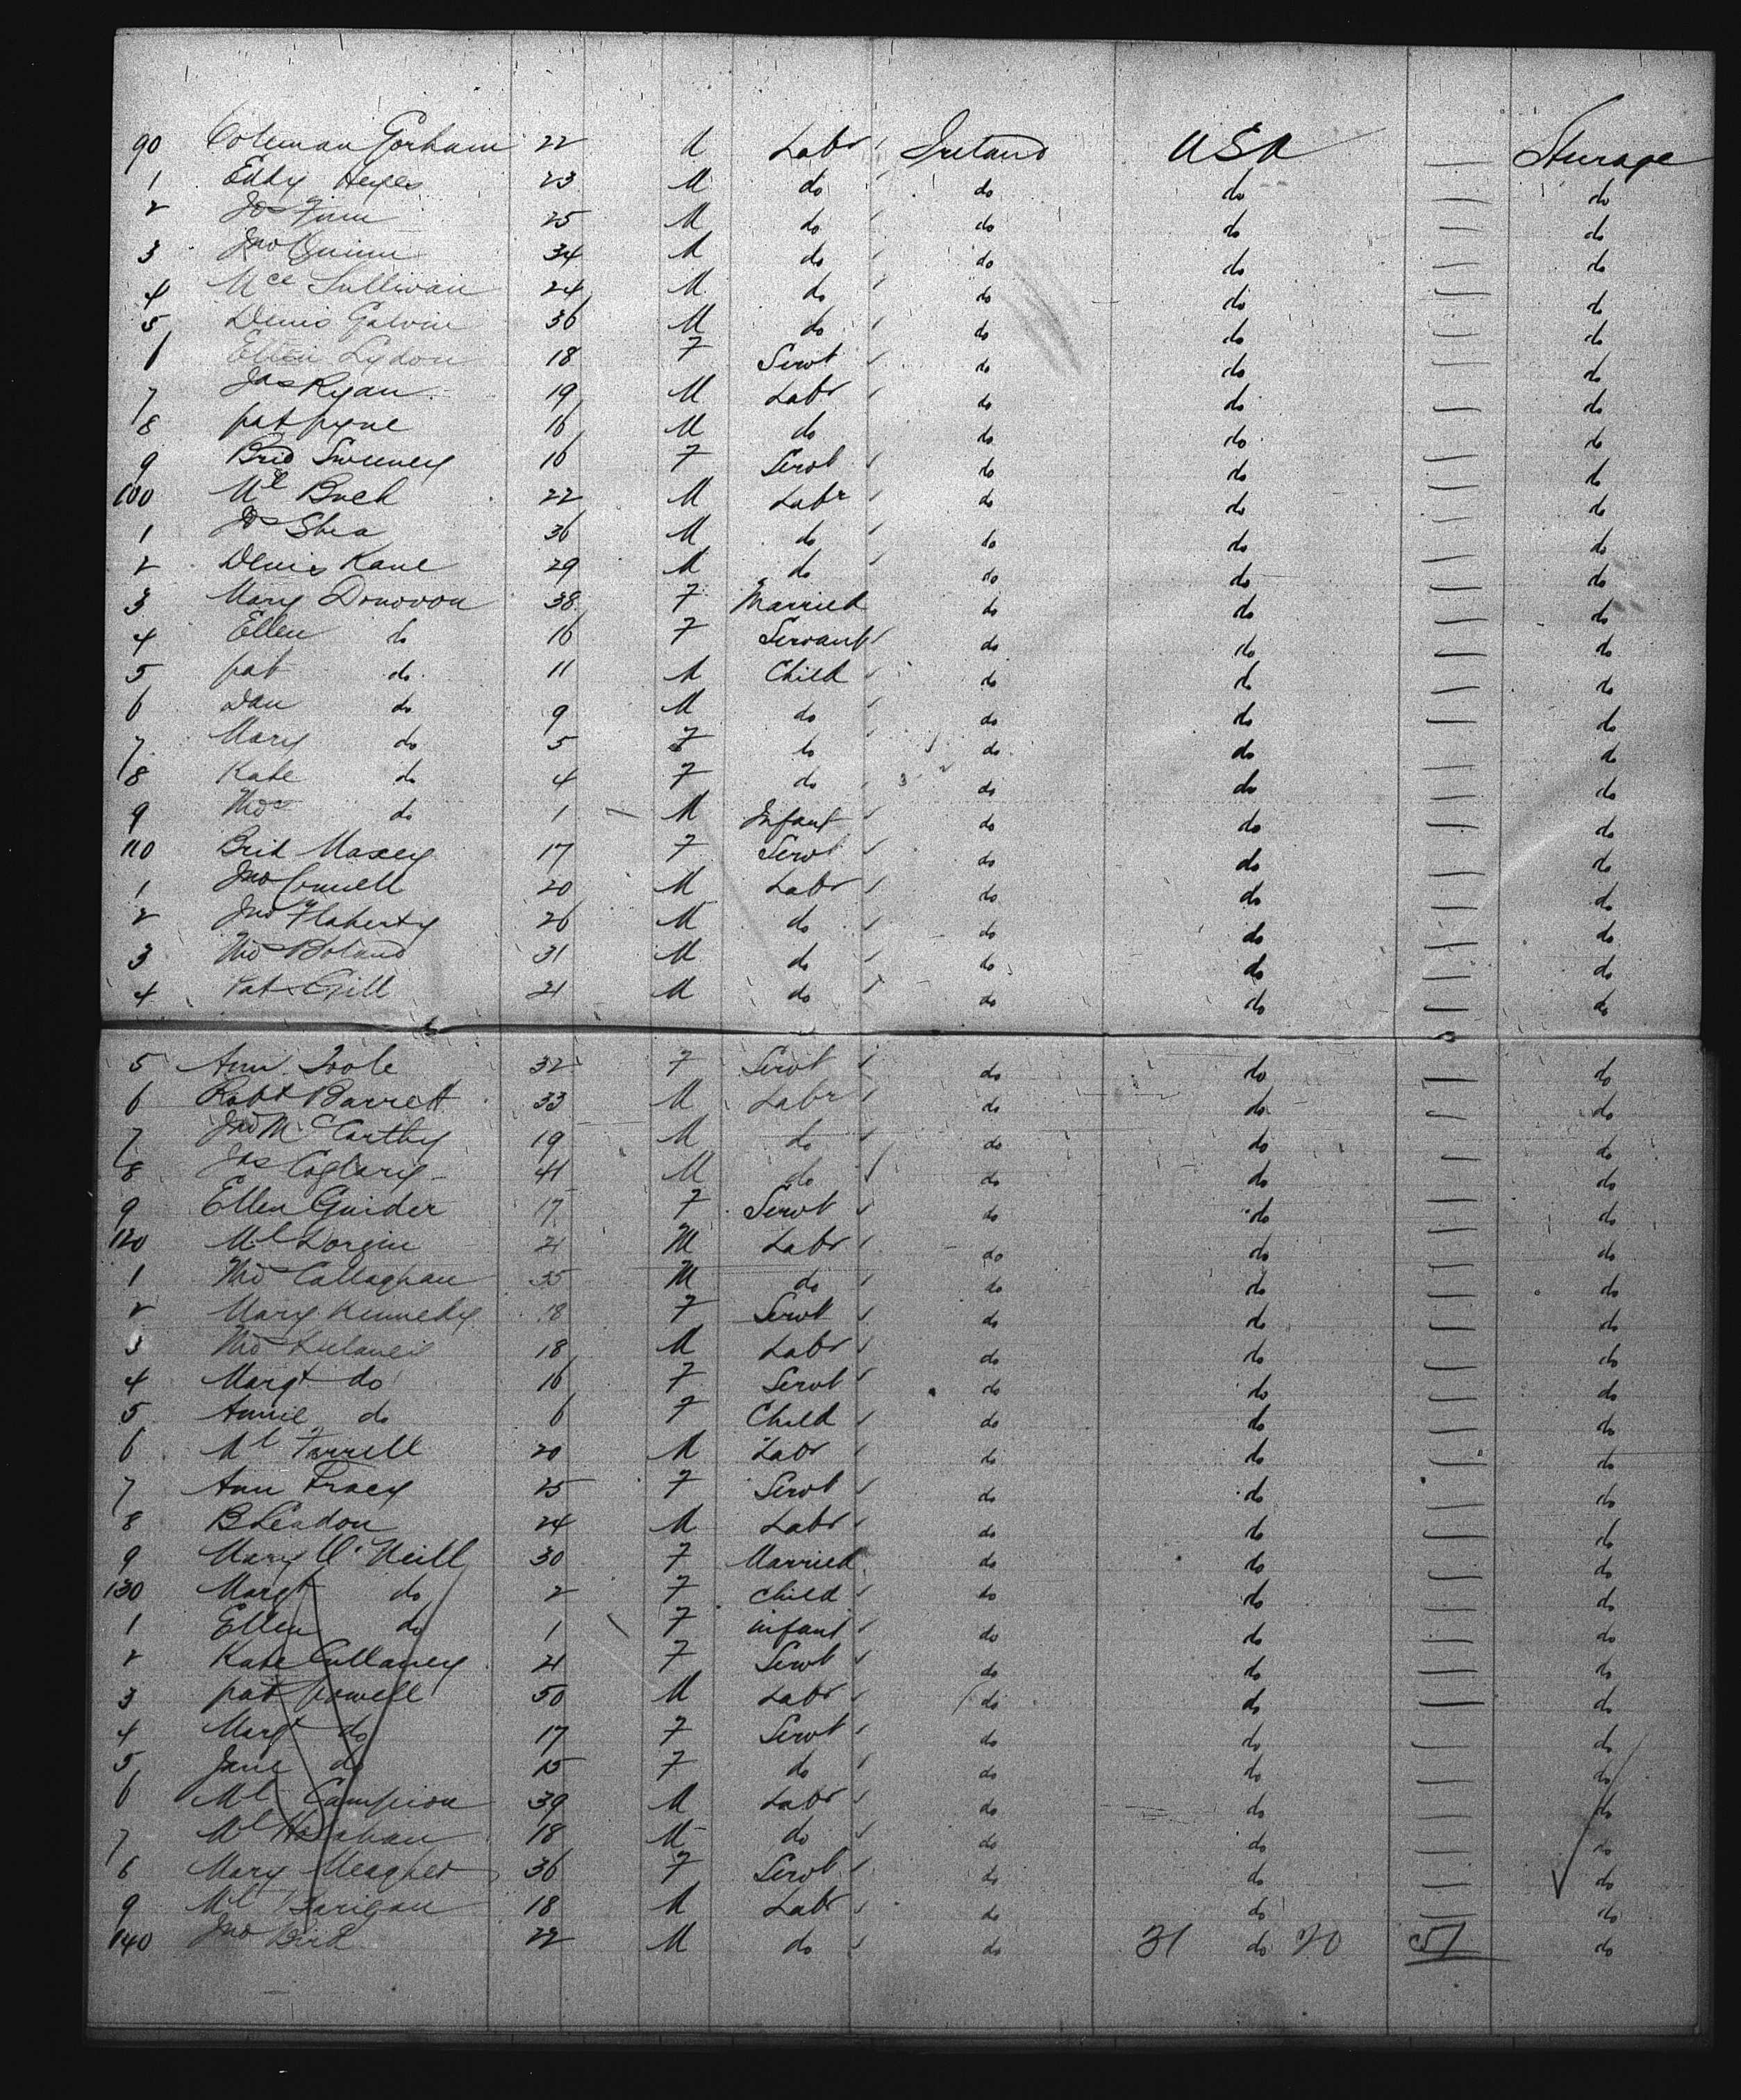 90 Coleman Gorham 22 M Labr Ireland USA — Sturage
1 Eddy Heyes 23 M do do do — do
2 Jos Finn 25 M do do do — do
3 Jno Quinn 34 M do do do — do
4 Mce Sullivan 24 M do do do — do
5 Denis Galvin 36 M do do do — do
6 Ellen Lydon 18 F Servt do do — do
7 Jas Ryan 19 M Labr do do — do
8 pat pyne 16 M do do do — do
9 Brid Sweeney 16 F Servt do do — do
100 Ml 22 M Labr do do — do
1 Jos Shea 36 M do do do — do
2 Denis Kane 29 M do do do — do
3 Mary Donovon 38 F Married do do — do
4 Ellen do 16 F Servant do do — do
5 pat do 11 M Child do do — do
6 Dan do 9 M do do do — do
7 Mary do 5 F do do do — do
8 Kate do 4 F do do do — do
9 Thos do 1 — M Infant do do — do
110 Brid Maxey 17 F Servt do do — do
1 Jno Connell 20 M Labr do do — do
2 Jno Flaherty 26 M do do do — do
3 Thos Boland 31 M do do do — do
4 Pat Gill 21 M do do do — do
5 Ann Toole 32 F Servt do do — do
6 Robt Barrett 33 M Labr do do — do
7 Jno McCarthy 19 M do do do — do
8 Jas 41 M do do do — do
9 Ellen Guider 17 F Servt do do — do
120 Ml 21 M Labr do do — do
1 Thos Callaghan 35 M do do do — do
2 Mary Kennedy 18 F Servt do do — do
3 Thos 18 M Labr do do — do
4 Margt do 16 F Servt do do — do
5 Annie do 6 F Child do do — do
6 Ml Farrell 20 M Labr do do — do
7 Ann Tracy 25 F Servt do do — do
8 B Leadon 24 M Labr do do — do
9 Mary O'Neill 30 F Married do do — do
130 Margt do 2 F child do do — do
1 Ellen do 1 F infant do do — do
2 Kate Cullaney 21 F Servt do do — do
3 pat powell 50 M Labr do do — do
4 Margt do 17 F Servt do do — do
5 Jane do 15 F do do do — do
6 Ml Campion 39 M Labr do do — do
7 Ml 18 M do do do — do
8 Mary Meagher 36 F Servt do do — do
9 Ml 18 M Labr do do — do
140 Jno Bird 22 M do do 31 do 20 51 do